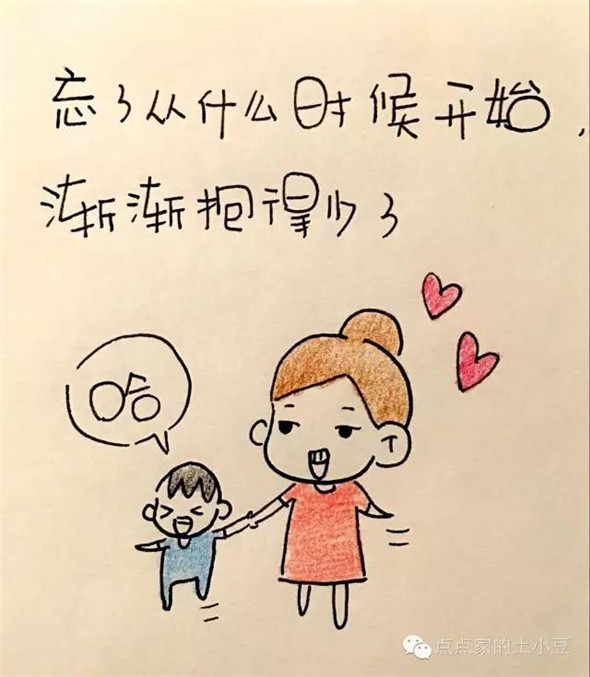 忘了从什么时候开始，
渐渐抱得少了
哈
点点家的土小豆